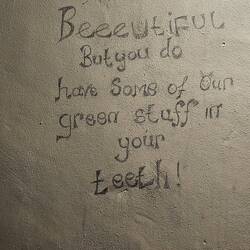 Beeeutiful
But you do
have some of our
green stuff in
your
teeth!